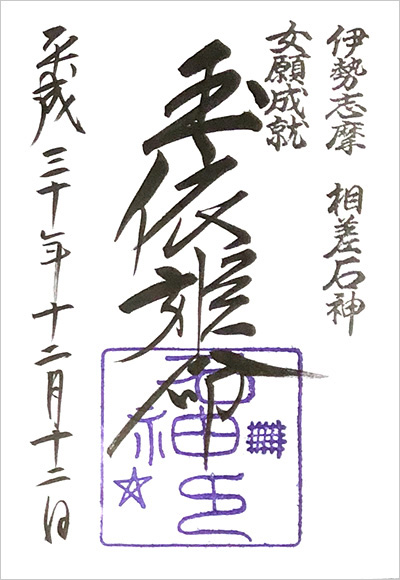 伊勢志摩 相差石神
女願成就
玉依姫命
平成三十年十二月十二日